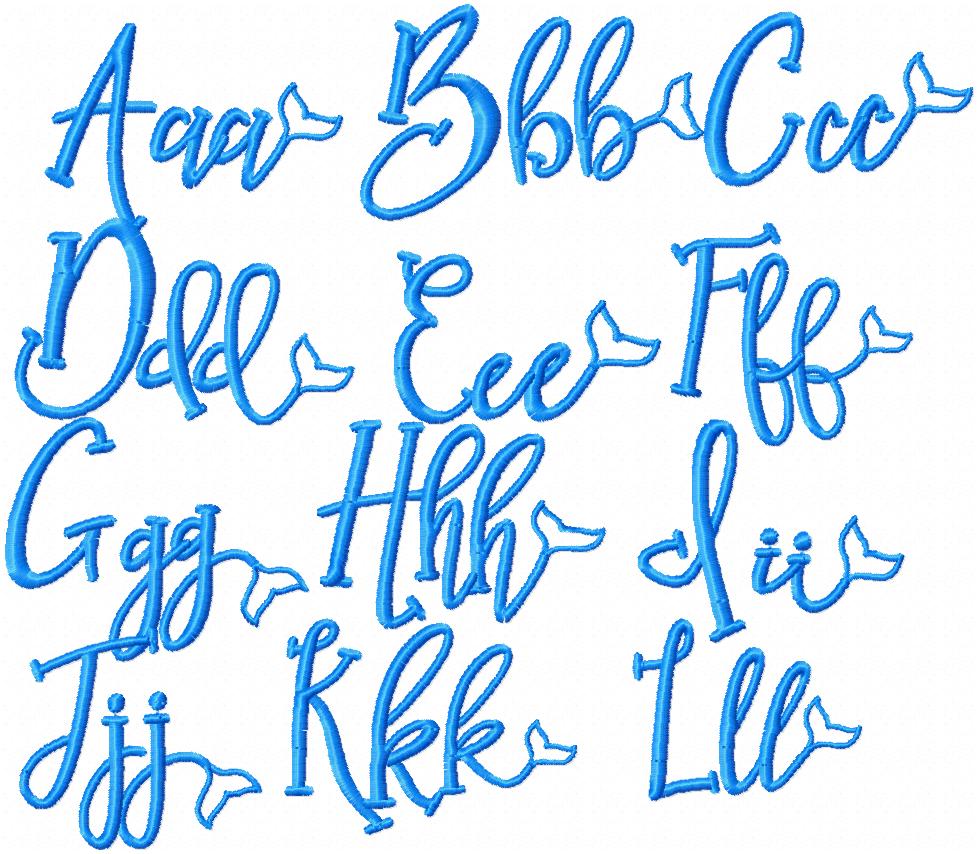 Aaa Bbb Ccc
Ddd Eee Fff
Ggg Hhh Iii
Jjj Kkk Lll